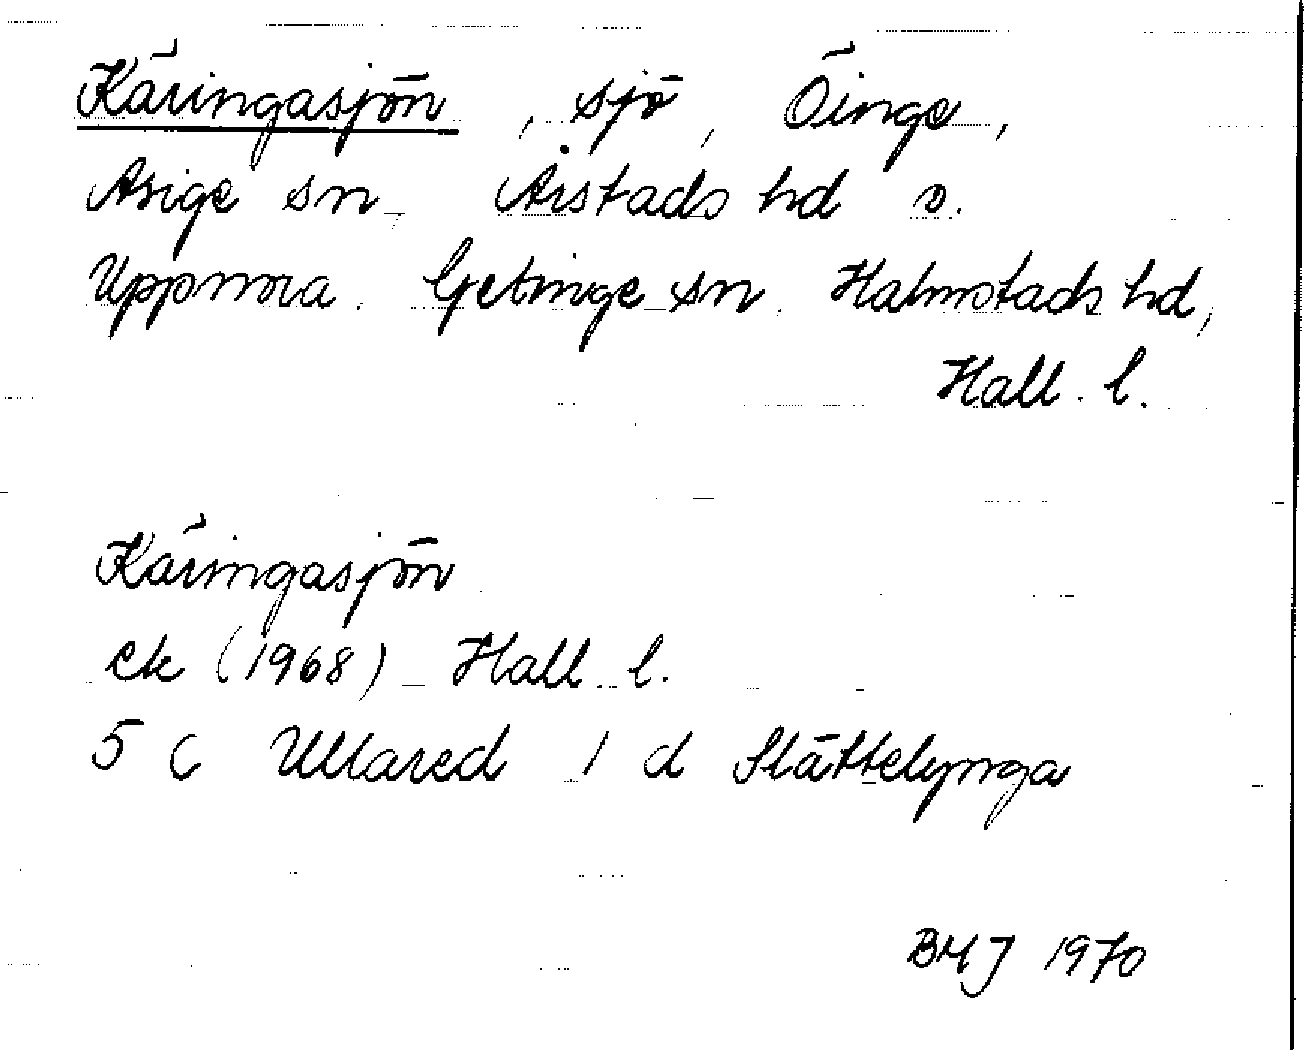 Käringasjön, sjö, Öinge,
Asige sn, Årstads hd o.
Uppmora. Getinge sn. Halmstads hd,
Hall. l.
Käringasjön
ek (1968) Hall. l.
5 C Ullared 1 d Slättelynga
BMJ 1970